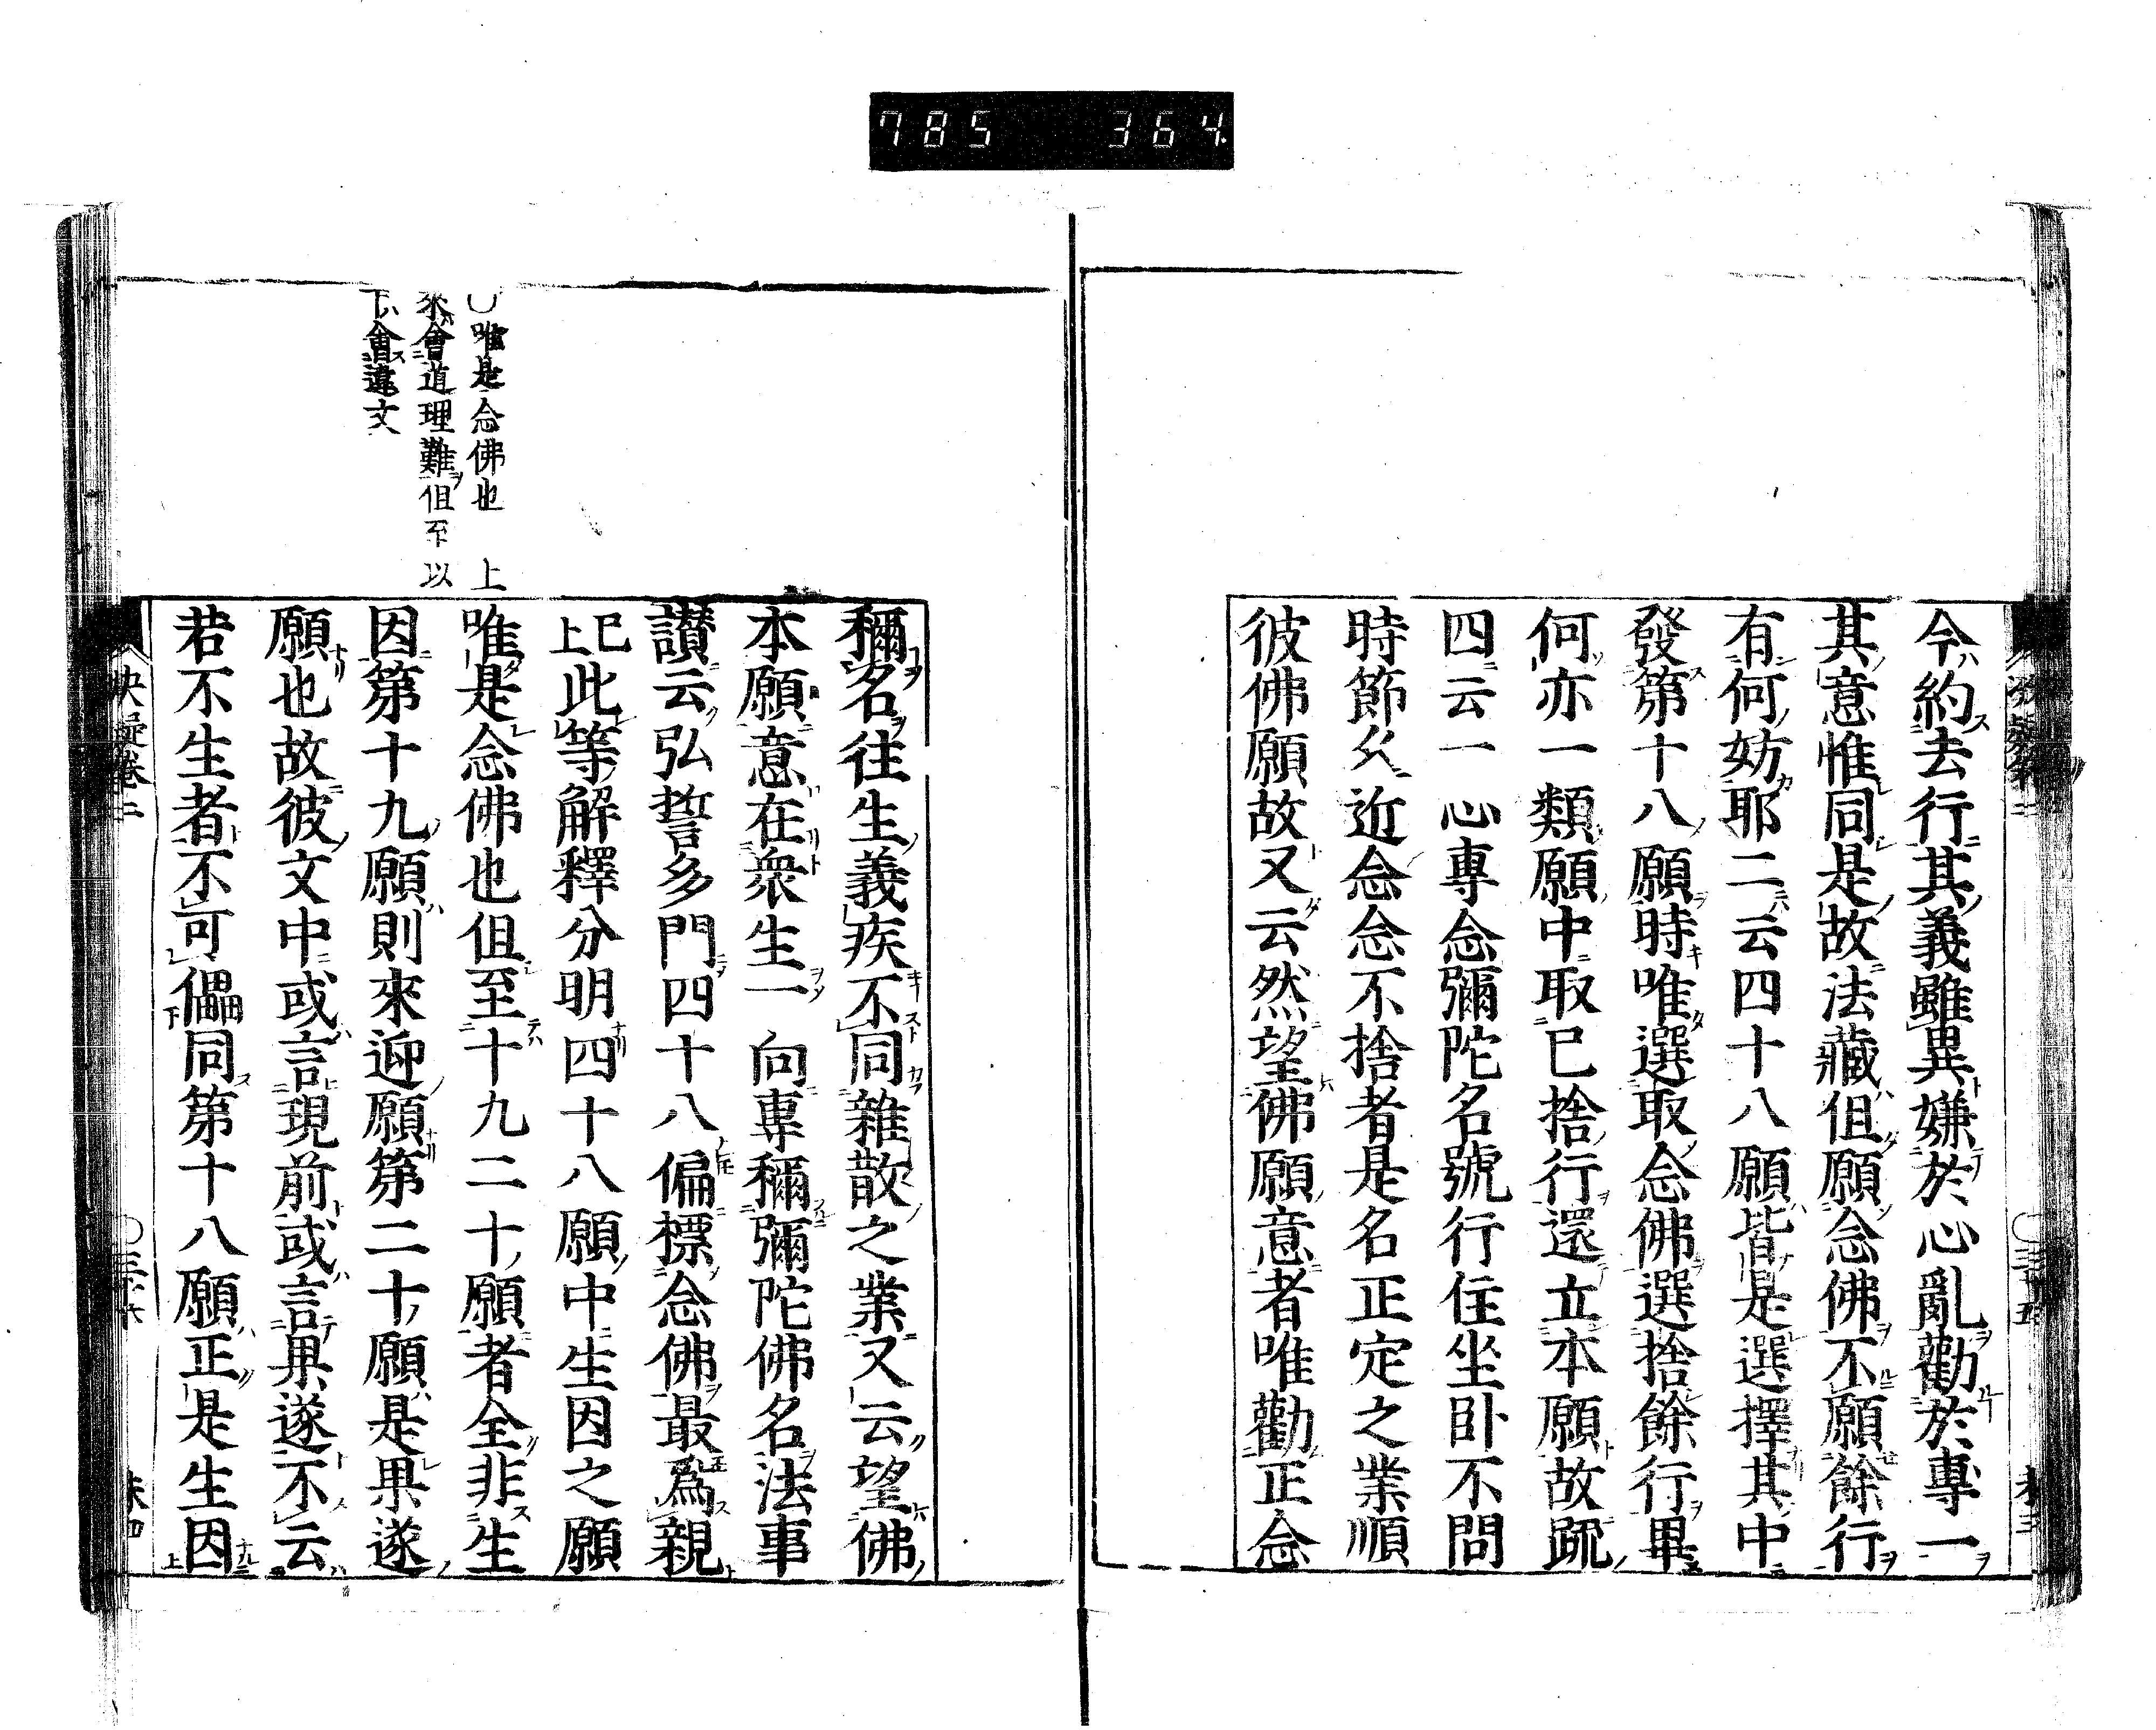 785 364
今約去行其義雖異嫌於心亂勸於專一
其意惟同是故法藏但願念佛不願餘行
有何妨耶二云四十八願皆是選擇其中
發第十八願時唯選取念佛選捨餘行畢
何亦一類願中取已捨行還立本願故䟽
四云一心專念彌陀名號行住坐臥不問
時節久近念念不捨者是名正定之業順
彼佛願故又云然望佛願意者唯勸正念
稱名往生義疾不同雜散之業又云望佛
本願意在衆生一向專稱彌陀佛名法事
讃云弘誓多門四十八偏標念佛最爲親
已上此等解釋分明四十八願中生因之願
唯是念佛也但至十九二十願者全非生
因第十九願則來迎願第二十願是果遂
願也故彼文中或言現前或言果遂不云
若不生者不可儡同第十八願正是生因
〇唯是念佛也 上
來會道理難但至下以
下會違文
決疑卷二